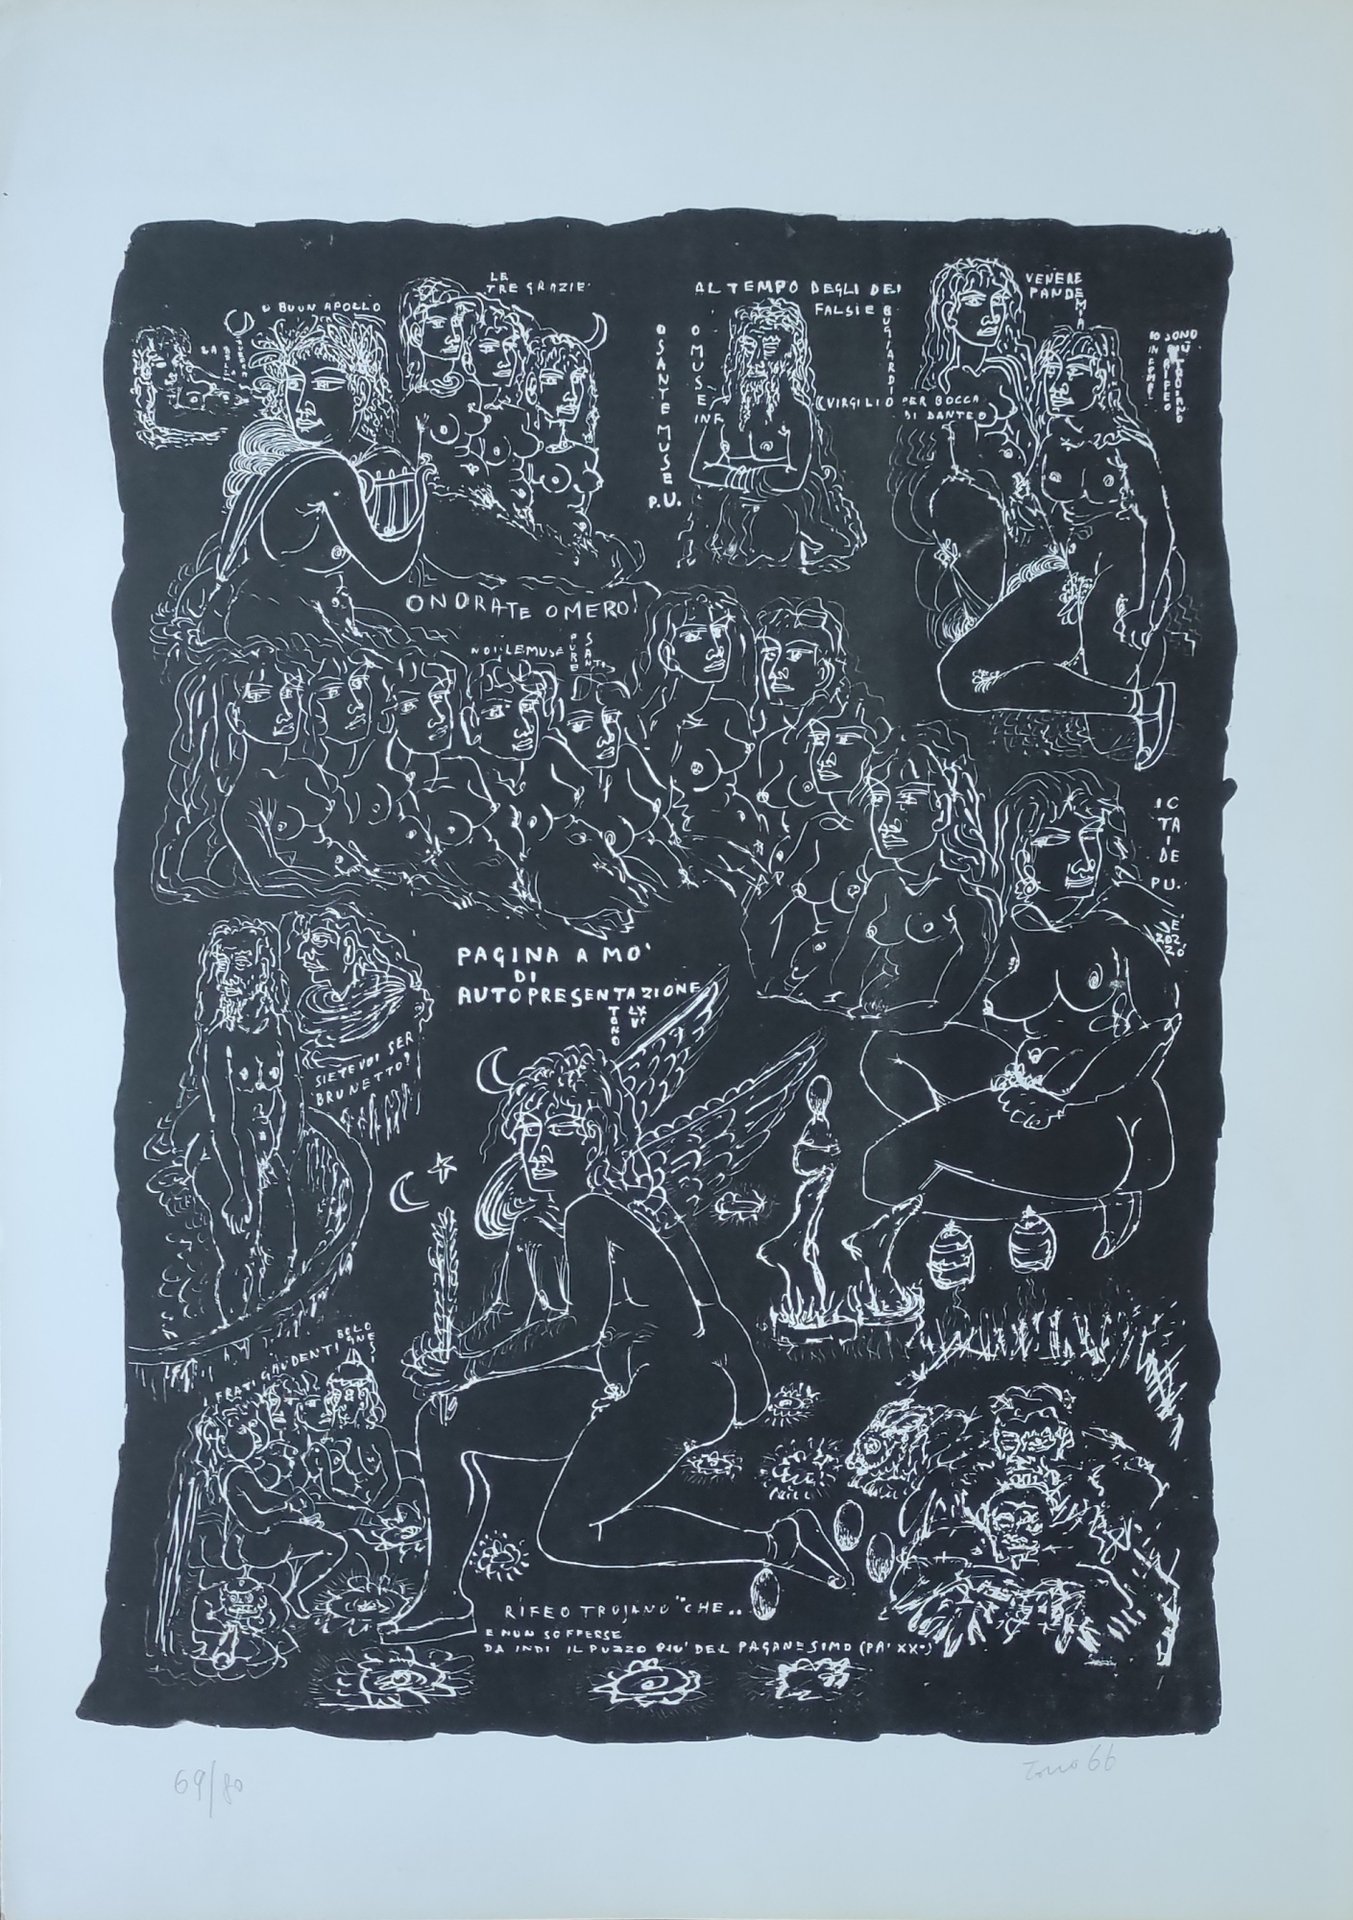 O BUON APOLLO
LE
TRE GRAZIE
LA
O SANTE MUSE
P.U.
O MUSE
INF.
AL TEMPO DEGLI DEI
FALSI E BUGIARDI
VIRGILIO PER BOCCA
DI DANTE
VENERE
PANDEMIA
IO SONO
RIFEO
ONORATE OMERO!
NOI LE MUSE
PURE
SANTE
PU.
PAGINA A MO'
DI
AUTOPRESENTAZIONE
TONO
LXVI
SIETE VOI SER
BRUNETTO?
FRATI GAUDENTI
BOLOGNESI
RIFEO TROJANO "CHE..
E NON SOFFERSE
DA INDI IL PUZZO PIU' DEL PAGANESIMO (PA' XX°)
69/80
Tono 66